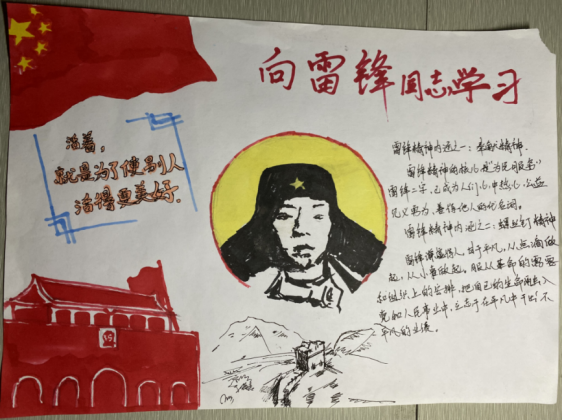 向雷锋同志学习
活着,
就是为了使别人
活得更美好.
雷锋精神内涵之一:奉献精神.
雷锋精神的核心是"为民服务"
雷锋二字,已成为人们心中热心公益
见义勇为、善待他人的代名词.
雷锋精神内涵之二:螺丝钉精神
雷锋 人,甘于平凡,从点滴做
起,从小事做起,服从革命的需要
和组织上的安排,把自己的生命融入
党和人民事业中,立志于在平凡中干出不
平凡的业绩.